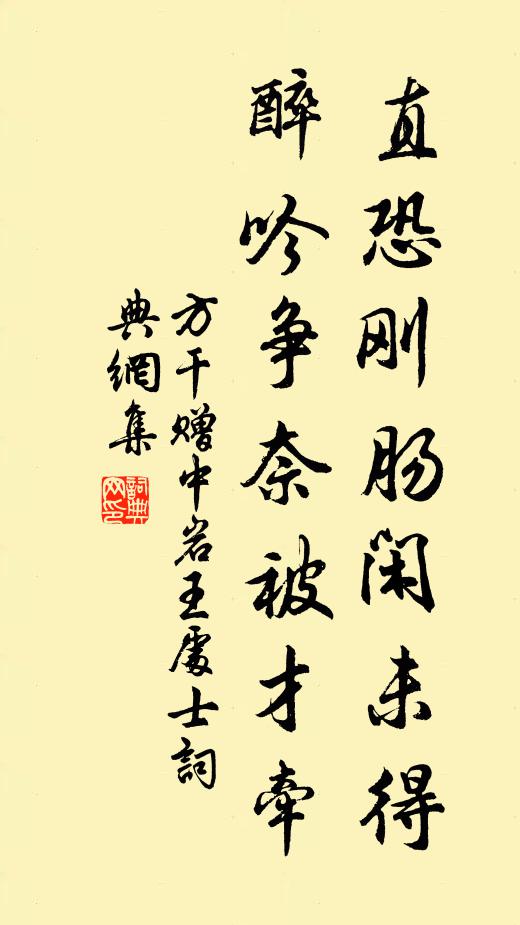 直恐刚肠闲未得
醉吟争奈被才牵
方干赠中岩王處士詞
典網集
詞典
网印